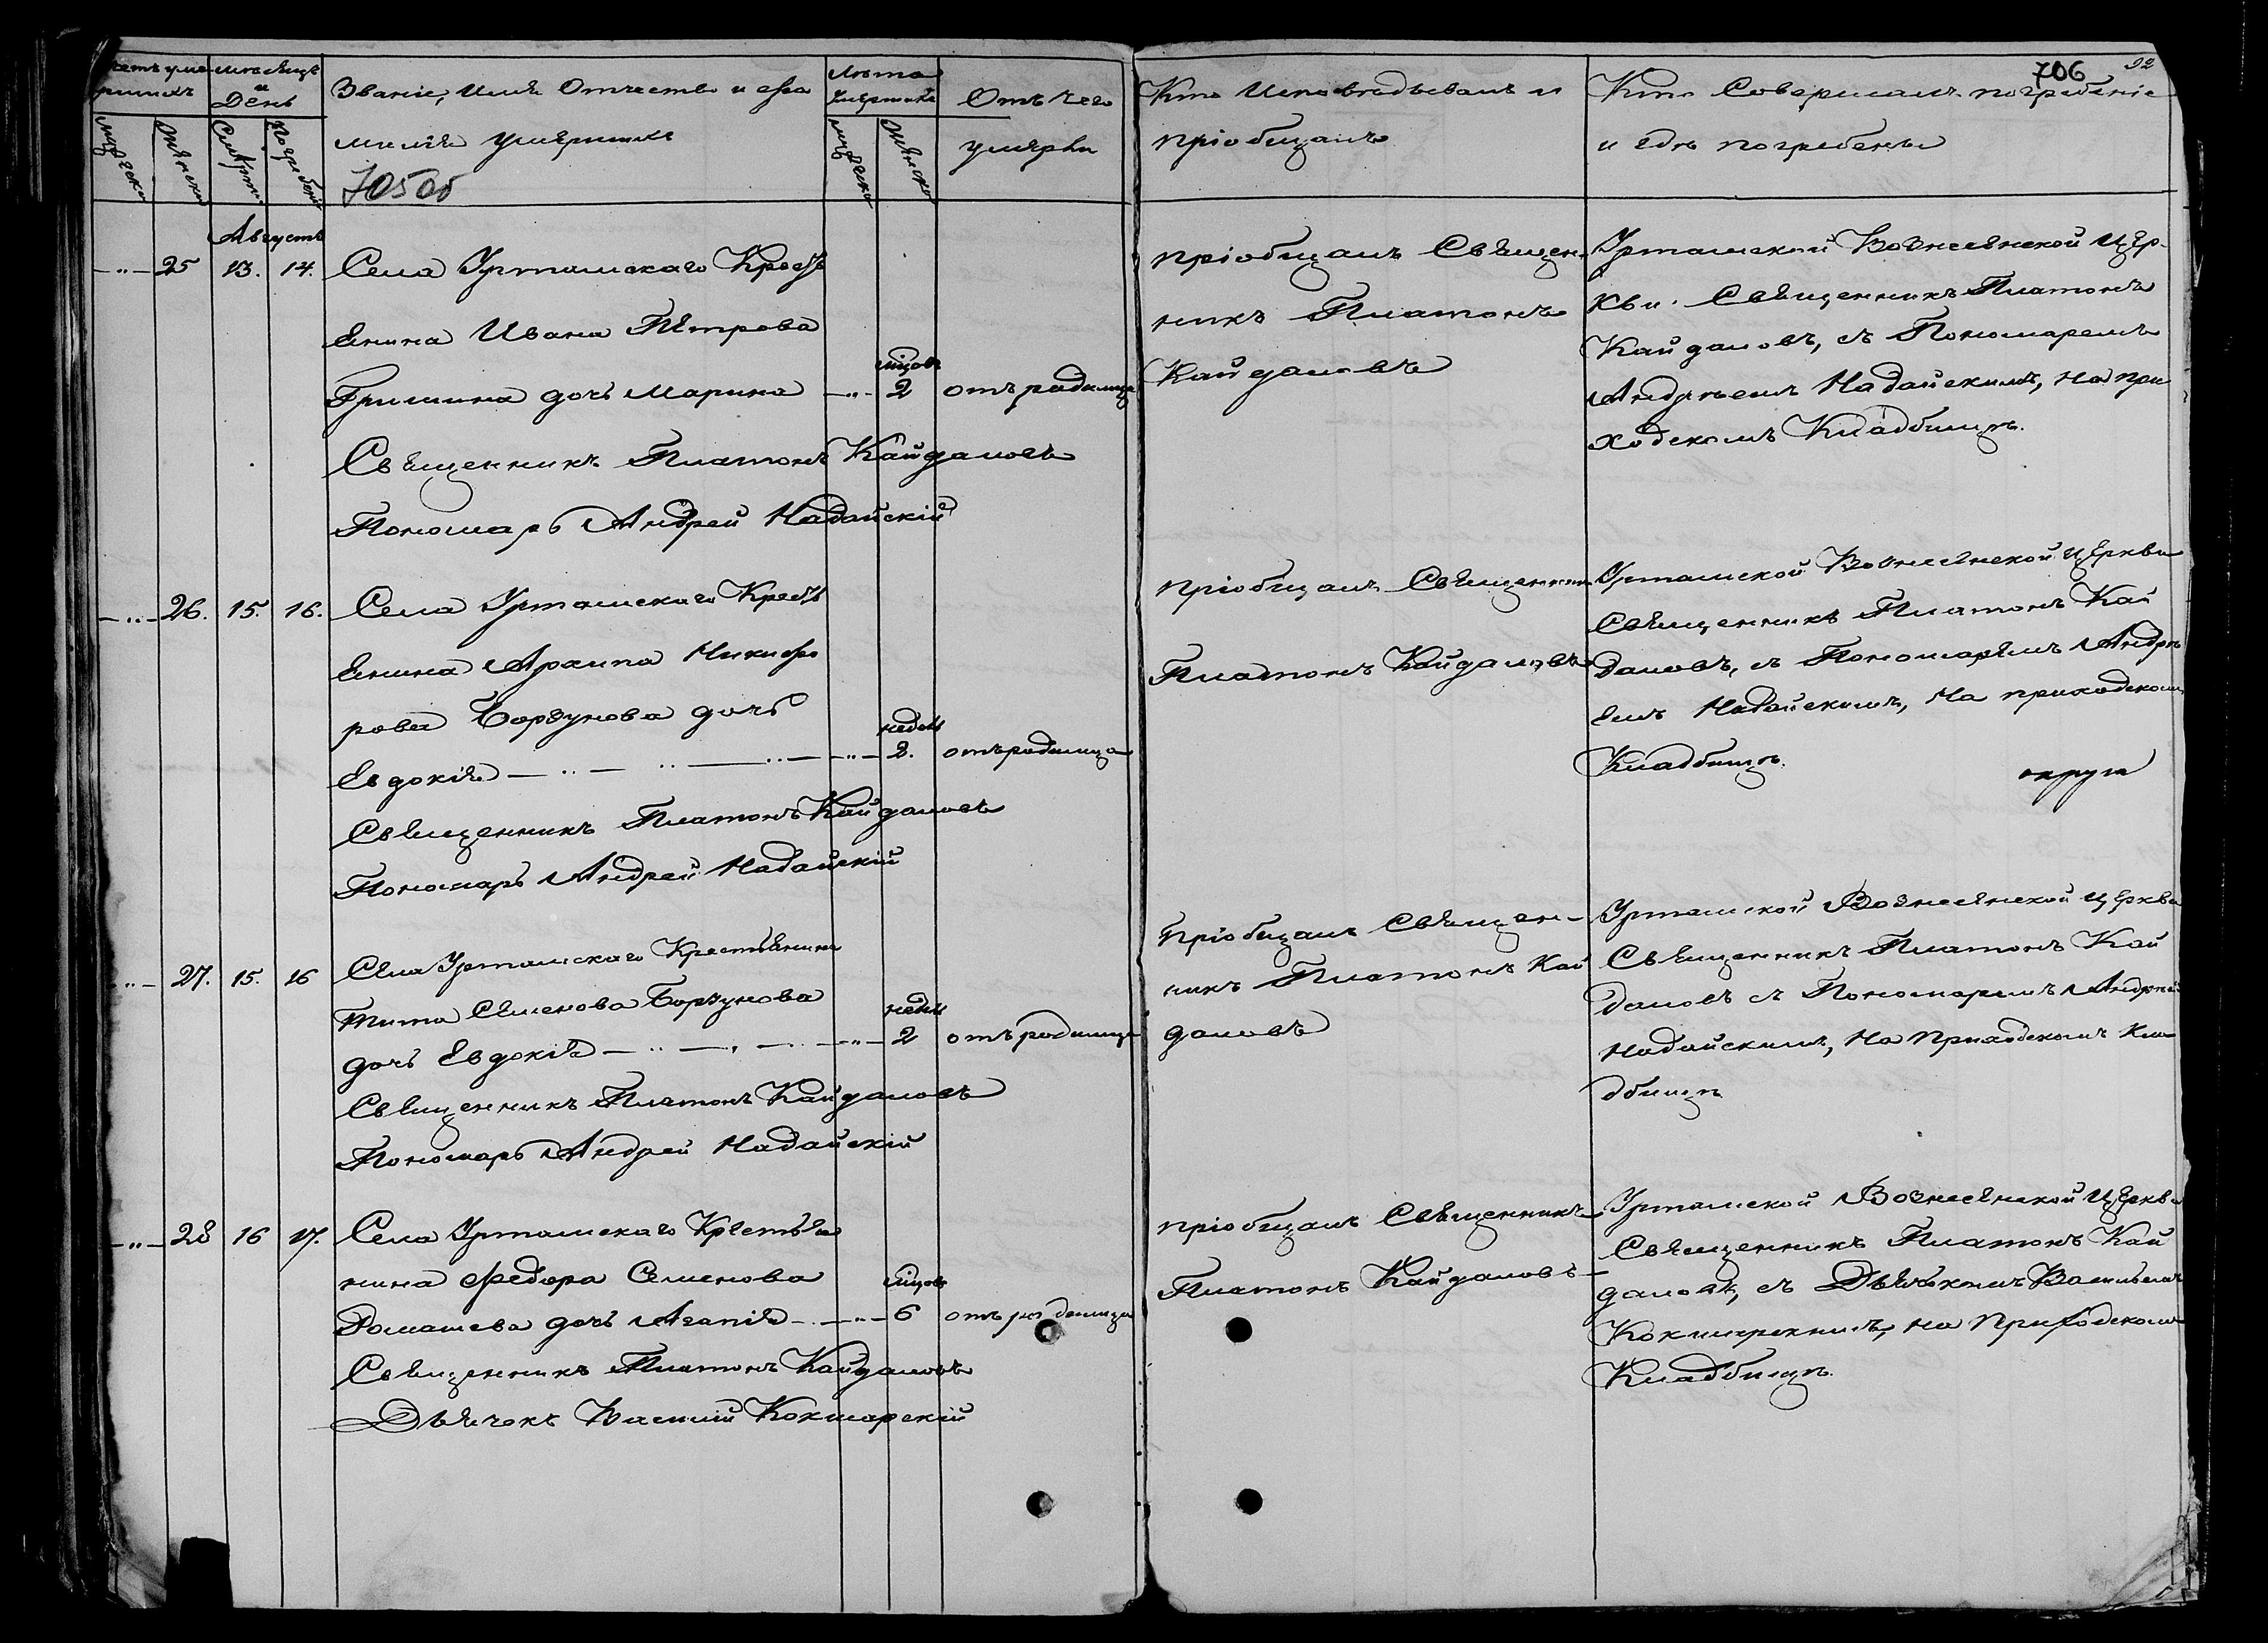 Счетъ умершихъ
Мѣсяцъ и День
Званіе, Имя Отчество и фа
милія умершихъ
Лѣта умершихъ
Отъ чего
умерли
Кто Исповѣдывалъ и
пріобщалъ
Кто Совершалъ погребеніе
и гдѣ погребены
706
92
мужески
женски
Смерти
Погребенія
мужеска
женска
705об
Августъ
—"— 25 13. 14. Села Уртамскаго Кресть
янина Ивана Петрова
мѣсцовъ
Гришина дочь Марина —"— 2 отъ родимца
Священникъ Платонъ Кайдаловъ
Пономарь Андрей Надайскій
пріобщалъ Священ-
никъ Платонъ
Кайдаловъ
Уртамской Вознесенской Цер-
кви Священникъ Платонъ
Кайдаловъ, съ Пономаремъ
Андреемъ Надайскимъ, На при
ходскомъ Кладбищѣ.
—"— 26. 15. 16. Села Уртамскаго Кресть
янина Архипа Никифо
рова Борзунова дочь
недѣль
Евдокія —"— 2. отъ родимца
Священникъ Платонъ Кайдаловъ
Пономарь Андрей Надайскій
пріобщалъ Священникъ
Платонъ Кайдаловъ
Уртамской Вознесенской Церкви
Священникъ Платонъ Кай
даловъ, съ Пономаремъ Андре
емъ Надайскимъ, На приходскомъ
Кладбищѣ.
округа
"— 27. 15. 16 Села Уртамскаго Крестьянина
Тита Семенова Борзунова
недѣль
дочь Евдокія —"— 2 отъ родимца
Священникъ Платонъ Кайдаловъ
Пономарь Андрей Надайскій
Пріобщалъ Священ-
никъ Платонъ Кай
даловъ
Уртамской Вознесенской Церкви
Священникъ Платонъ Кай
даловъ съ Пономаремъ Андреемъ
Надайскимъ, На Приходскомъ Кла
дбищѣ
—"— 28 16 17. Села Уртамскаго Крестья
нина Федора Семенова
мѣсцовъ
Домашева дочь Агапія —"— 6 отъ родимца
Священникъ Платонъ Кайдаловъ
Дьячекъ Василій Кокшарскій
пріобщалъ Священникъ
Платонъ Кайдаловъ
Уртамской Вознесенской Церкви
Священникъ Платонъ Кай
даловъ, съ Дьячкомъ Васильемъ
Кокшарскимъ, на Приходскомъ
Кладбищѣ.